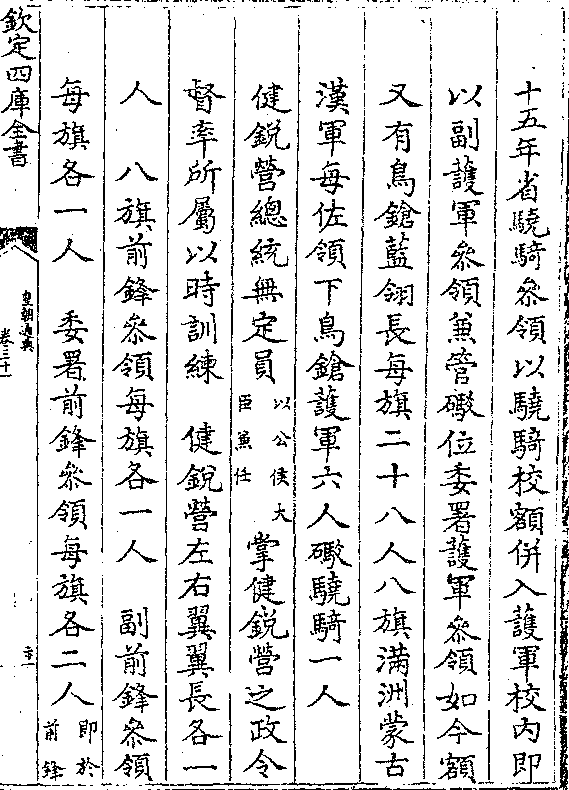 十五年省驍騎叅領以驍騎校額併入護軍校内即
以副護軍叅領兼管礮位委署護軍叅領如今額
又有鳥鎗藍翎長每旗二十八人八旗滿洲蒙古
漢軍每佐領下鳥鎗護軍六人礮驍騎一人
健銳營總統無定員以公侯大臣兼任掌健銳營之政令
督率所屬以時訓練　健銳營左右翼翼長各一
人　八旗前鋒叅領每旗各一人　副前鋒叅領
每旗各一人　委署前鋒叅領每旗各二人即於前鋒
欽定四庫全書
皇朝通典
卷三十一